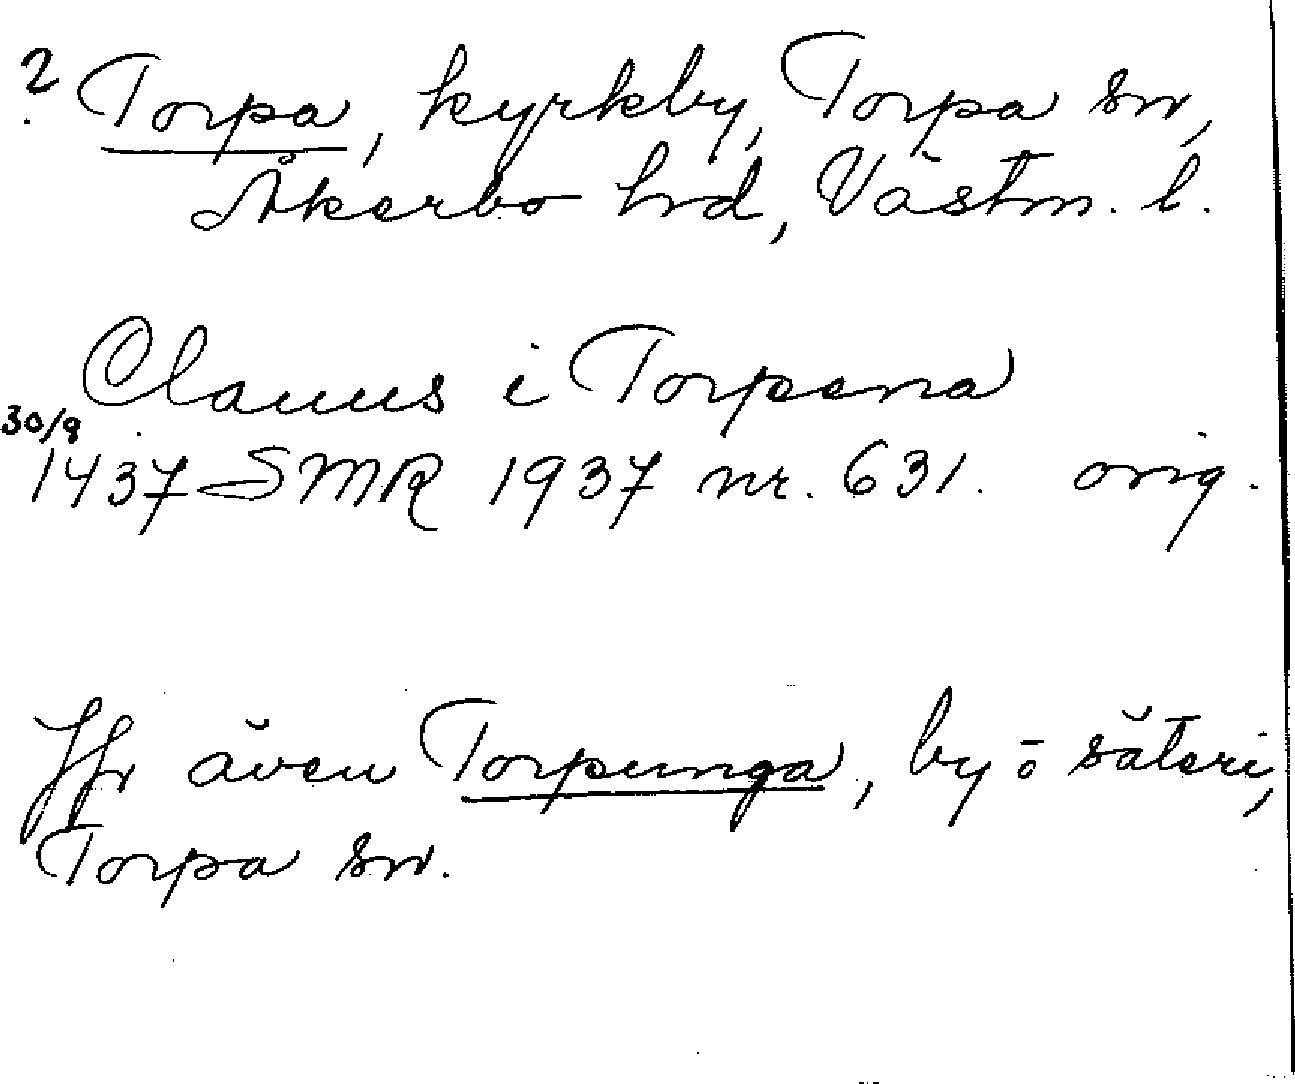 ? Torpa, kyrkby, Torpa sn,
Åkerbo hrd, Västm. l.
Olauus i Torpena
30/9
1437 SMR 1937 nr. 631. orig.
Jfr även Torpunga, by o säteri,
Torpa sn.